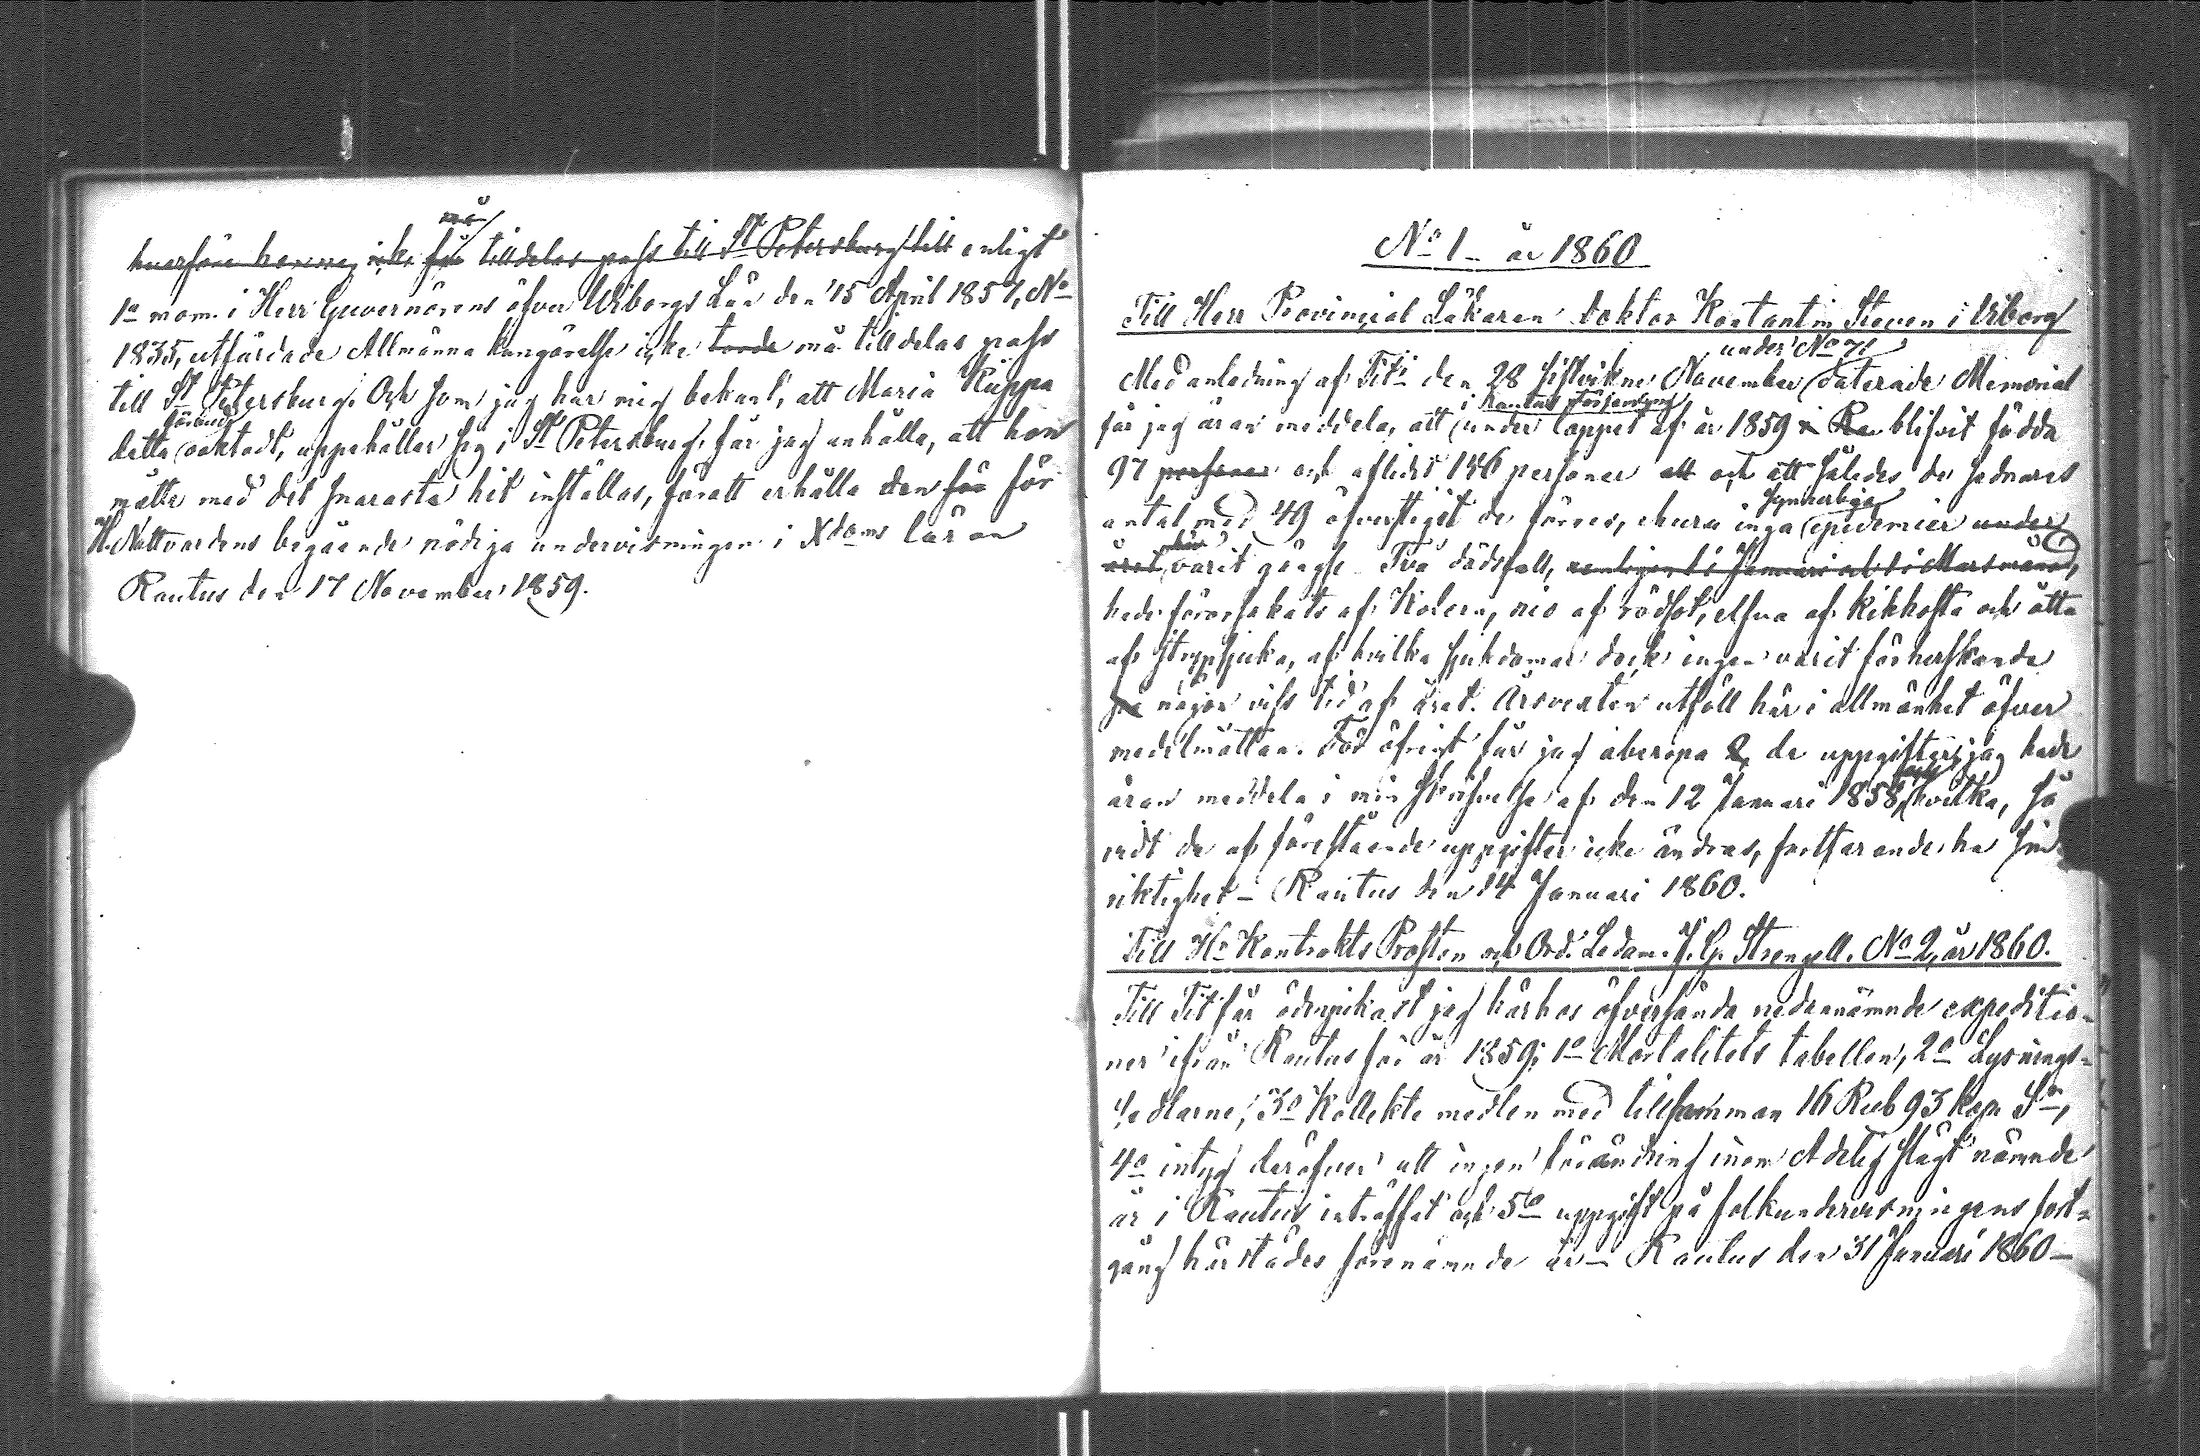 må
hvarföre honom icke får tilldelas pass till St Petersburg till enligt
1o mom. i Herr Guvernörens öfver Wiborgs Län den 15 April 1857, No
1835, utfärdade Allmänna kungörelse icke torde må tilldelas pass
till St Petersburg. Och som jag har mig bekant, att Maria Kuppa
förbud
detta oaktadt, uppehåller sig i St Petersburg, får jag anhålla, att hon
måtte med det snarasta hit inställas, föratt erhålla den för för
H. Nattvardens begående nödiga undervisningen i Xdoms läran
Rautus den 17 November 1859.
No 1 - år 1860
Till Herr Provincial Läkaren Doktor Konstantin Steven i Wiborg
under No 71
Med anledning af Tits den 28 sistvikne November daterade Memorial
i Rautus församling
får jag äran meddela, att under loppet af år 1859 i Rau blifvit födda
97 personer och aflidit 146 personer att och att således de sednares
synnerliga
antal med 49 öfverstigit de förres, ehuru inga epidemier under
här
året varit gängse. Två dödsfall, nemligen 1 i Januari och 1 i Mars månad,
hade förorsakats af Kolera, nio af rödsot, elfva af kikhosta och åtta
af strypsjuka, af hvilka sjukdomar dock ingen varit förherrskande
på någon viss tid af året. Årsvexten utföll här i allmänhet öfver
medelmåttan. För öfrigt får jag åberopa de uppgifter, jag hade
äran meddela i min skrifvelse af den 12 Januari 1858, hvilka, så
vidt de af förestående uppgifter icke ändras, fortfarande ha sin
riktighet - Rautus den 14 Januari 1860.
Till Hr Kontrakts Prosten och Ord. Ledam. J. G. Strengell. No 2, år 1860.
Till Tit får ödmjukast jag härhos öfversända nedannämnde expeditio-
ner ifrån Rautus för år 1859; 1o Mortalitets tabellen, 2o Lysnings-
sedlarne, 3o Kollekte medlen med tillsamman 16 Rub 93 kop Sr,
4o intyg deröfver att ingen förändring inom Adelig slägt nämnde
år i Rautus inträffat och 5o uppgift på folkundervisningens fort-
gång härstädes förenämnde år - Rautus den 31 Januari 1860 -